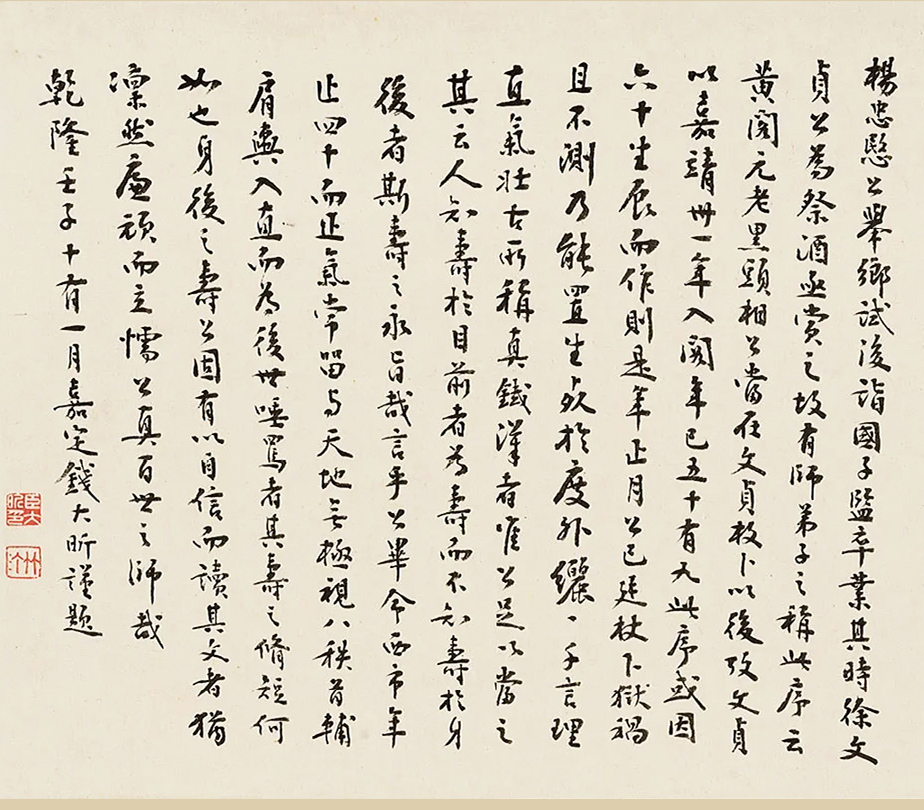 楊忠愍公舉鄉試後詣國子監卒業其時徐文
貞公為祭酒亟賞之故有師弟子之稱此序云
黃閣元老黑頭相公當在文貞枚卜以後攷文貞
以嘉靖卅一年入閣年已五十有九此序或因
六十生辰而作則是年正月公已廷杖下獄禍
且不測乃能置生死於度外纚〻千言理
直氣壯古所稱真鐵漢者唯公足以當之
其云人知壽於目前者為壽而不知壽於身
後者斯壽之永旨哉言乎公畢命西市年
止四十而正氣常留與天地無極視八秩首輔
肩輿入直而為後世唾罵者其壽之脩短何
如也身後之壽公固有以自信而讀其文者猶
凜然廉頑而立懦公真百世之師哉
乾隆壬子十有一月嘉定錢大昕謹題
臣大昕印
竹汀